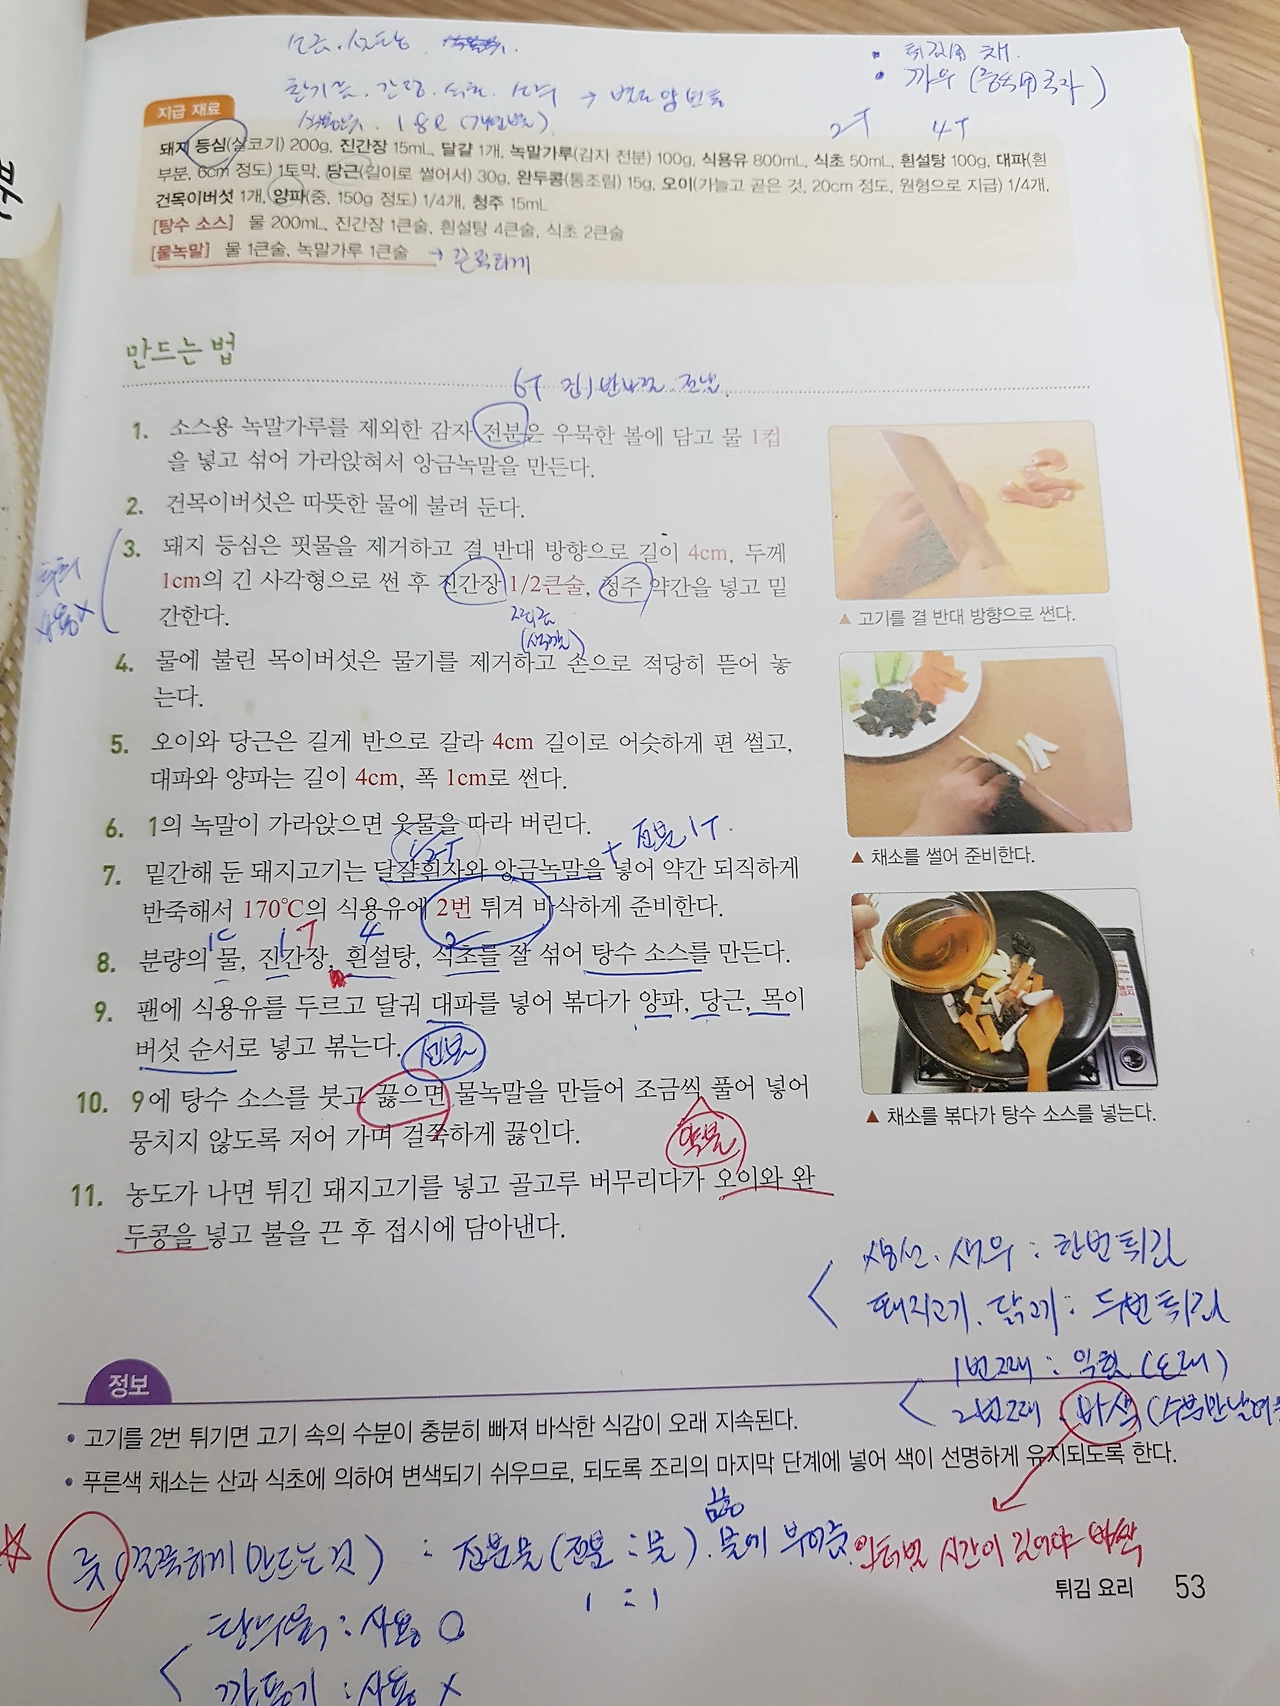 소금, 설탕
· 튀김用 채
· 까우 (중식用 국자)
참기름, 간장, 식초, 식유 →
1.8ℓ (개인별)
2T 4T
지급 재료
돼지 등심(살코기) 200g, 진간장 15mL, 달걀 1개, 녹말가루(감자 전분) 100g, 식용유 800mL, 식초 50mL, 흰설탕 100g, 대파(흰
부분, 6cm 정도) 1토막, 당근(길이로 썰어서) 30g, 완두콩(통조림) 15g, 오이(가늘고 곧은 것, 20cm 정도, 원형으로 지급) 1/4개,
건목이버섯 1개, 양파(중, 150g 정도) 1/4개, 청주 15mL
[탕수 소스] 물 200mL, 진간장 1큰술, 흰설탕 4큰술, 식초 2큰술
[물녹말] 물 1큰술, 녹말가루 1큰술 → 끈적하게
만드는 법
6T
1. 소스용 녹말가루를 제외한 감자 전분은 우묵한 볼에 담고 물 1컵
을 넣고 섞어 가라앉혀서 앙금녹말을 만든다.
2. 건목이버섯은 따뜻한 물에 불려 둔다.
3. 돼지 등심은 핏물을 제거하고 결 반대 방향으로 길이 4cm, 두께
1cm의 긴 사각형으로 썬 후 진간장 1/2큰술, 청주 약간을 넣고 밑
간한다.
사용 X
조금
(색깔)
4. 물에 불린 목이버섯은 물기를 제거하고 손으로 적당히 뜯어 놓
는다.
5. 오이와 당근은 길게 반으로 갈라 4cm 길이로 어슷하게 편 썰고,
대파와 양파는 길이 4cm, 폭 1cm로 썬다.
6. 1의 녹말이 가라앉으면 웃물을 따라 버린다.
1/2T + 전분 1T
7. 밑간해 둔 돼지고기는 달걀흰자와 앙금녹말을 넣어 약간 되직하게
반죽해서 170℃의 식용유에 2번 튀겨 바삭하게 준비한다.
1C 1T 4 2
8. 분량의 물, 진간장, 흰설탕, 식초를 잘 섞어 탕수 소스를 만든다.
9. 팬에 식용유를 두르고 달궈 대파를 넣어 볶다가 양파, 당근, 목이
버섯 순서로 넣고 볶는다. 센불
10. 9에 탕수 소스를 붓고 끓으면 물녹말을 만들어 조금씩 풀어 넣어
뭉치지 않도록 저어 가며 걸쭉하게 끓인다.
약불
11. 농도가 나면 튀긴 돼지고기를 넣고 골고루 버무리다가 오이와 완
두콩을 넣고 불을 끈 후 접시에 담아낸다.
▲ 고기를 결 반대 방향으로 썬다.
▲ 채소를 썰어 준비한다.
▲ 채소를 볶다가 탕수 소스를 넣는다.
생선, 새우 : 한번 튀김
돼지고기, 닭고기 : 두번 튀김
1번째 : 익힘 (오래)
2번째 : 바삭
정보
• 고기를 2번 튀기면 고기 속의 수분이 충분히 빠져 바삭한 식감이 오래 지속된다.
• 푸른색 채소는 산과 식초에 의하여 변색되기 쉬우므로, 되도록 조리의 마지막 단계에 넣어 색이 선명하게 유지되도록 한다.
☆ 즛 (끈끈하게 만드는것) : 전분물 (전분 : 물). 끓는 물에 부어줌.
1 : 1
시간이 길어야 바삭
탕수육 : 사용 O
깐풍기 : 사용 X
튀김 요리 53